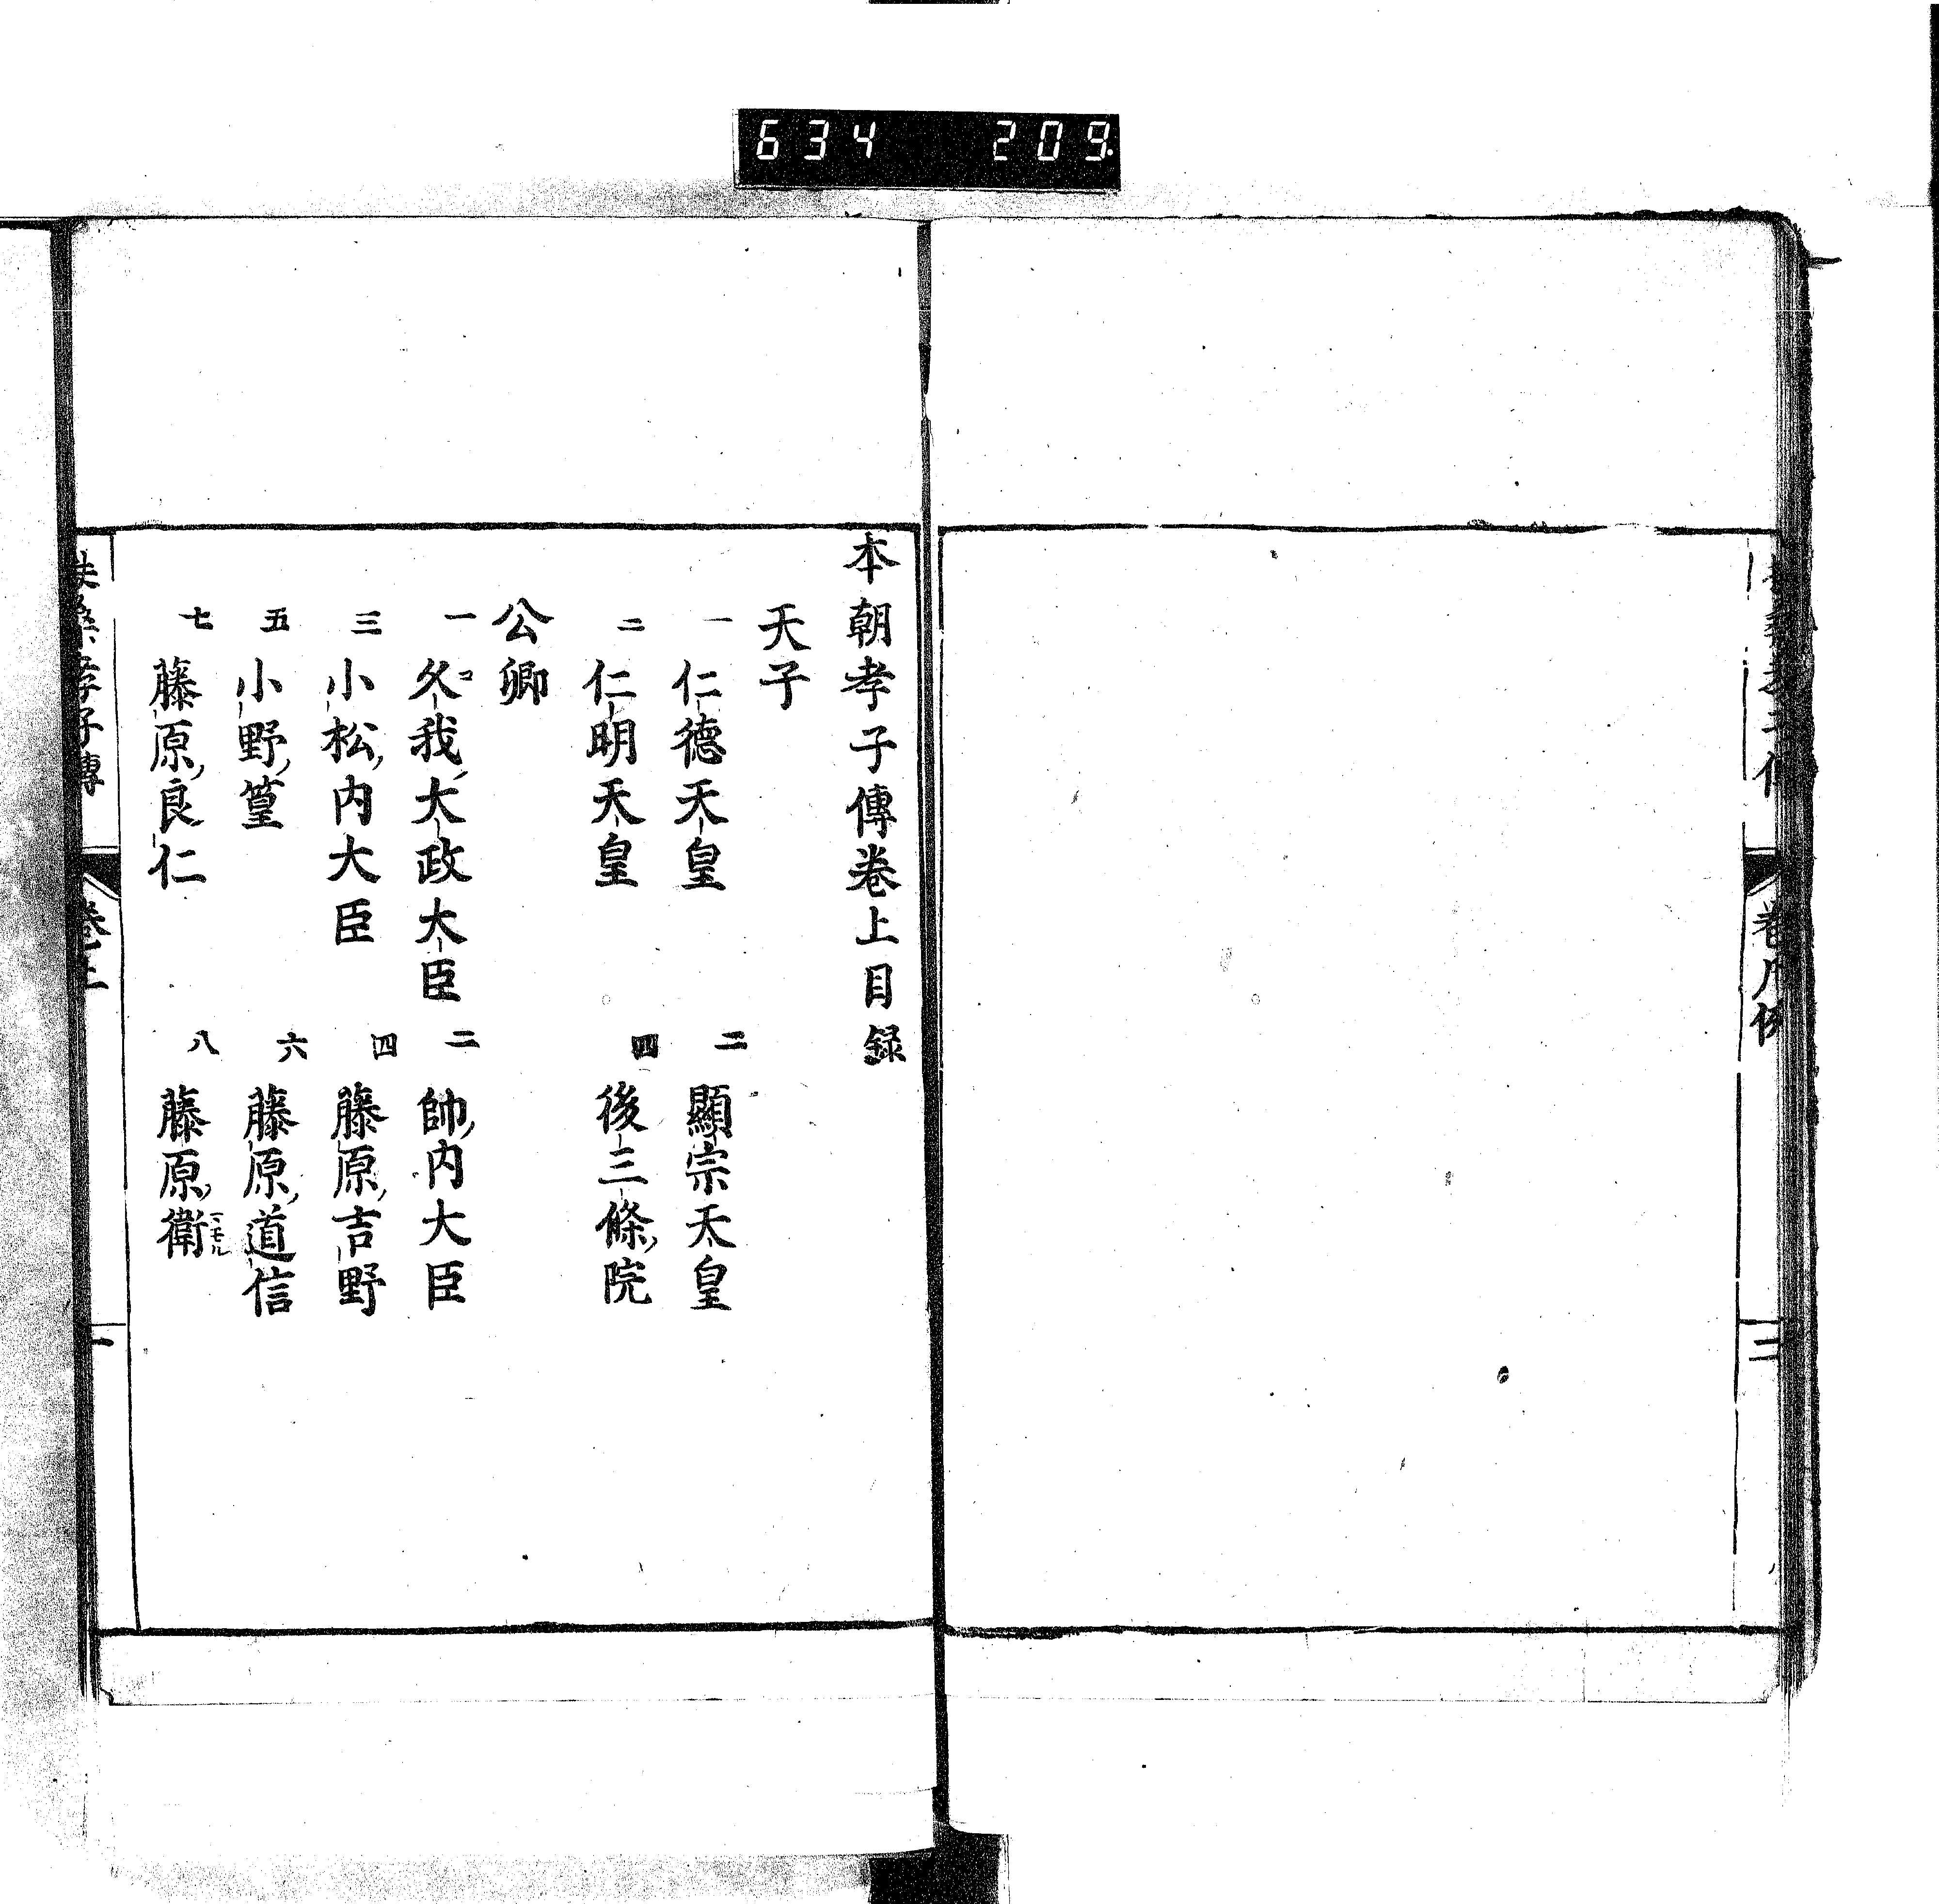 634 209
卷凡例
二
本朝孝子傳卷上目録
天子
一 仁德天皇
二 顯宗天皇
三 仁明天皇
四 後三條院
公卿
一 久我大政大臣
コ
二 帥内大臣
三 小松内大臣
四 藤原吉野
五 小野篁
六 藤原道信
七 藤原良仁
八 藤原衛
マモル
扶桑孝子傳
卷上
一